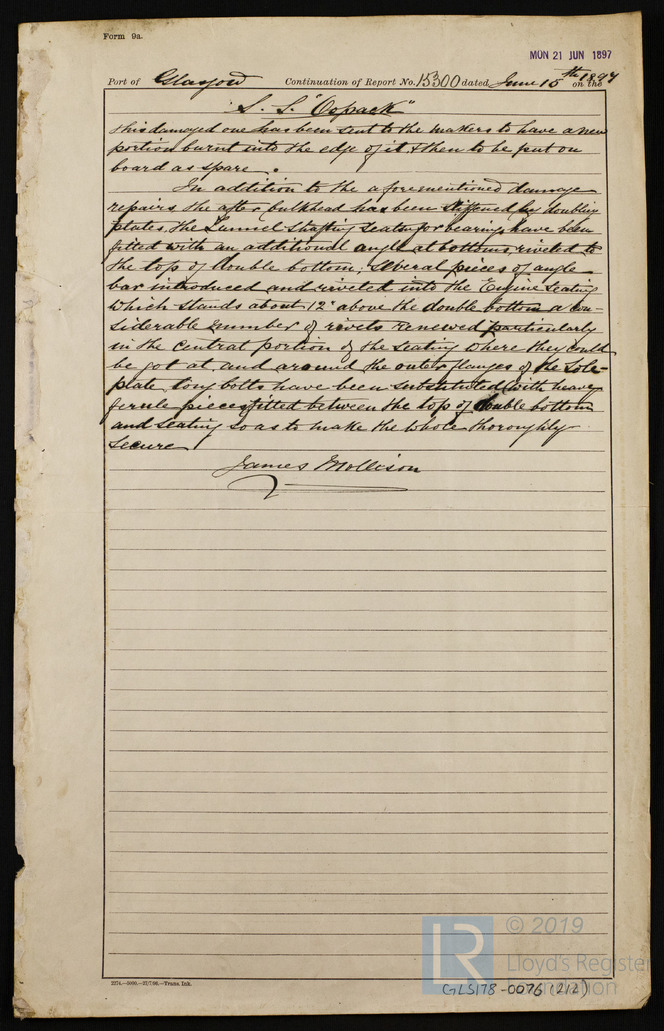 Form 9a.
MON 21 JUN 1897
Port of Glasgow Continuation of Report No. 15300 dated June 15th 1897 on the
S. S. "Oopack"
this damaged one has been sent to the makers to have a new
portion burnt into the edge of it & then to be put on
board as spare.
In addition to the aforementioned damage
repairs the after bulkhead has been stiffened by doubling
plates, the Tunnel shafting seating for bearings have been
fitted with an additional angle at bottoms, riveted to
the top of double bottom; several pieces of angle
bar introduced and riveted into the Engine Seating
which stands about 12" above the double bottom a con-
siderable number of rivets renewed particularly
in the central portion of the seating where they could
be got at, and around the outer flanges of the sole-
plate long bolts have been substituted with heavy
ferule pieces fitted between the top of double bottom
and seating so as to make the whole thoroughly
secure
James Mollison
2274.—5000.—27/7/96.—Trans. Ink.
LR © 2019
Lloyd's Register
Foundation
GLS178-0076 (2/2)